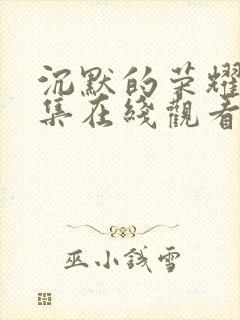 沉默的荣耀
集在綫觀看
巫小钱雪